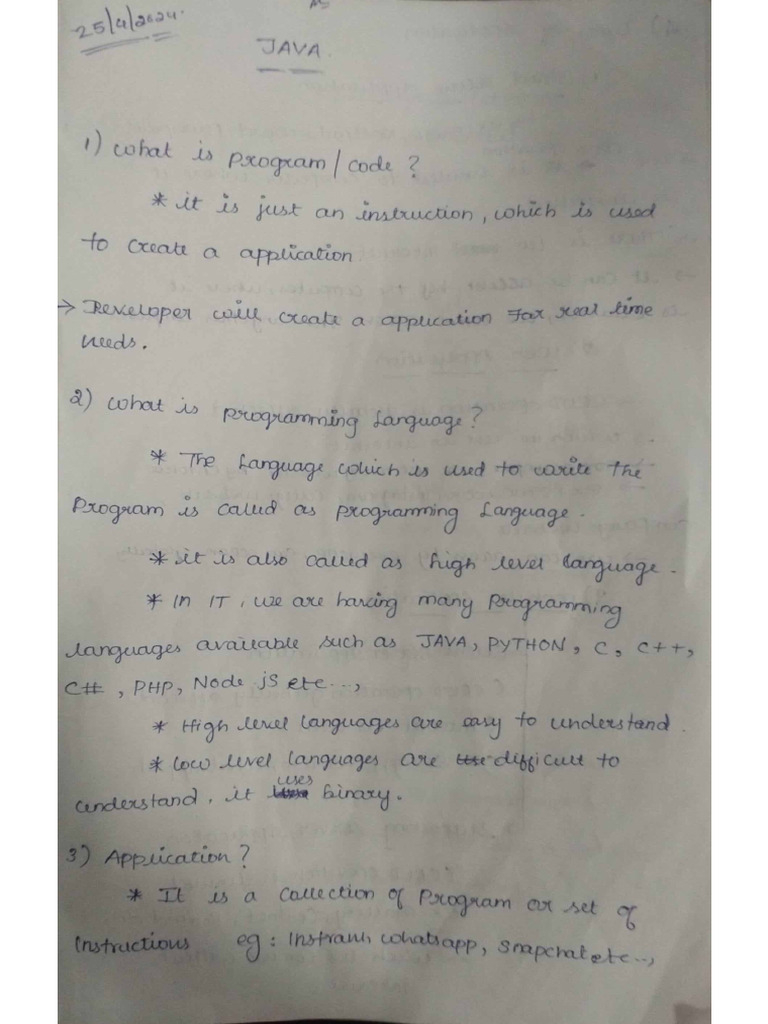 25/4/2024.
JAVA.
1) What is program/code?
* it is just an instruction, which is used
to create a application
→ Developer will create a application For real time
needs.
2) What is programming Language?
* The Language which is used to write the
Program is called as programming Language.
* it is also called as high level language.
* In IT, we are having many Programming
languages available such as JAVA, PYTHON, C, C++,
C#, PHP, Node js etc...,
* High level languages are easy to understand.
* Low level languages are difficult to
understand, it uses binary.
3) Application?
* It is a collection of Program or set of
instructions eg: Whatsapp, Snapchat etc...,